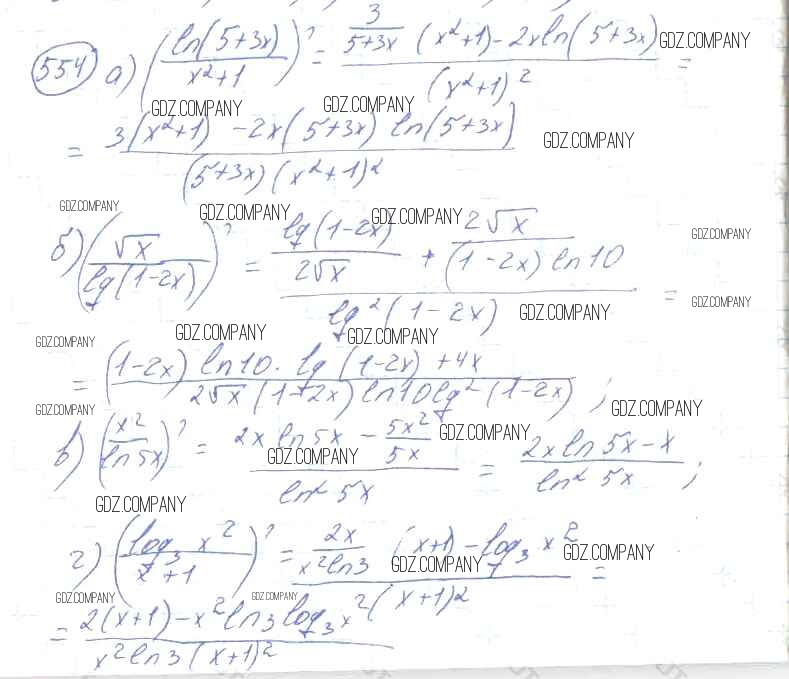 554 а) (ln(5+3x) / x²+1)' = (3/(5+3x) (x²+1) - 2x ln(5+3x)) / (x²+1)² = GDZ.COMPANY
GDZ.COMPANY GDZ.COMPANY
= (3(x²+1) - 2x(5+3x) ln(5+3x)) / ((5+3x)(x²+1)²) GDZ.COMPANY
GDZ.COMPANY GDZ.COMPANY GDZ.COMPANY GDZ.COMPANY
б) (√x / lg(1-2x))' = (lg(1-2x)/(2√x) + 2√x/((1-2x) ln10)) / lg²(1-2x) = GDZ.COMPANY
GDZ.COMPANY GDZ.COMPANY GDZ.COMPANY GDZ.COMPANY
= ((1-2x) ln10 · lg(1-2x) + 4x) / (2√x (1-2x) ln10 lg²(1-2x)) ;
GDZ.COMPANY GDZ.COMPANY
в) (x² / ln5x)' = (2x ln5x - 5x²/5x) / ln² 5x = (2x ln5x - x) / ln² 5x ;
GDZ.COMPANY GDZ.COMPANY
GDZ.COMPANY
г) (log₃ x² / x+1)' = (2x/(x² ln3) (x+1) - log₃ x²) / (x+1)² =
GDZ.COMPANY GDZ.COMPANY
GDZ.COMPANY GDZ.COMPANY
= (2(x+1) - x² ln3 log₃ x²) / (x² ln3 (x+1)²)